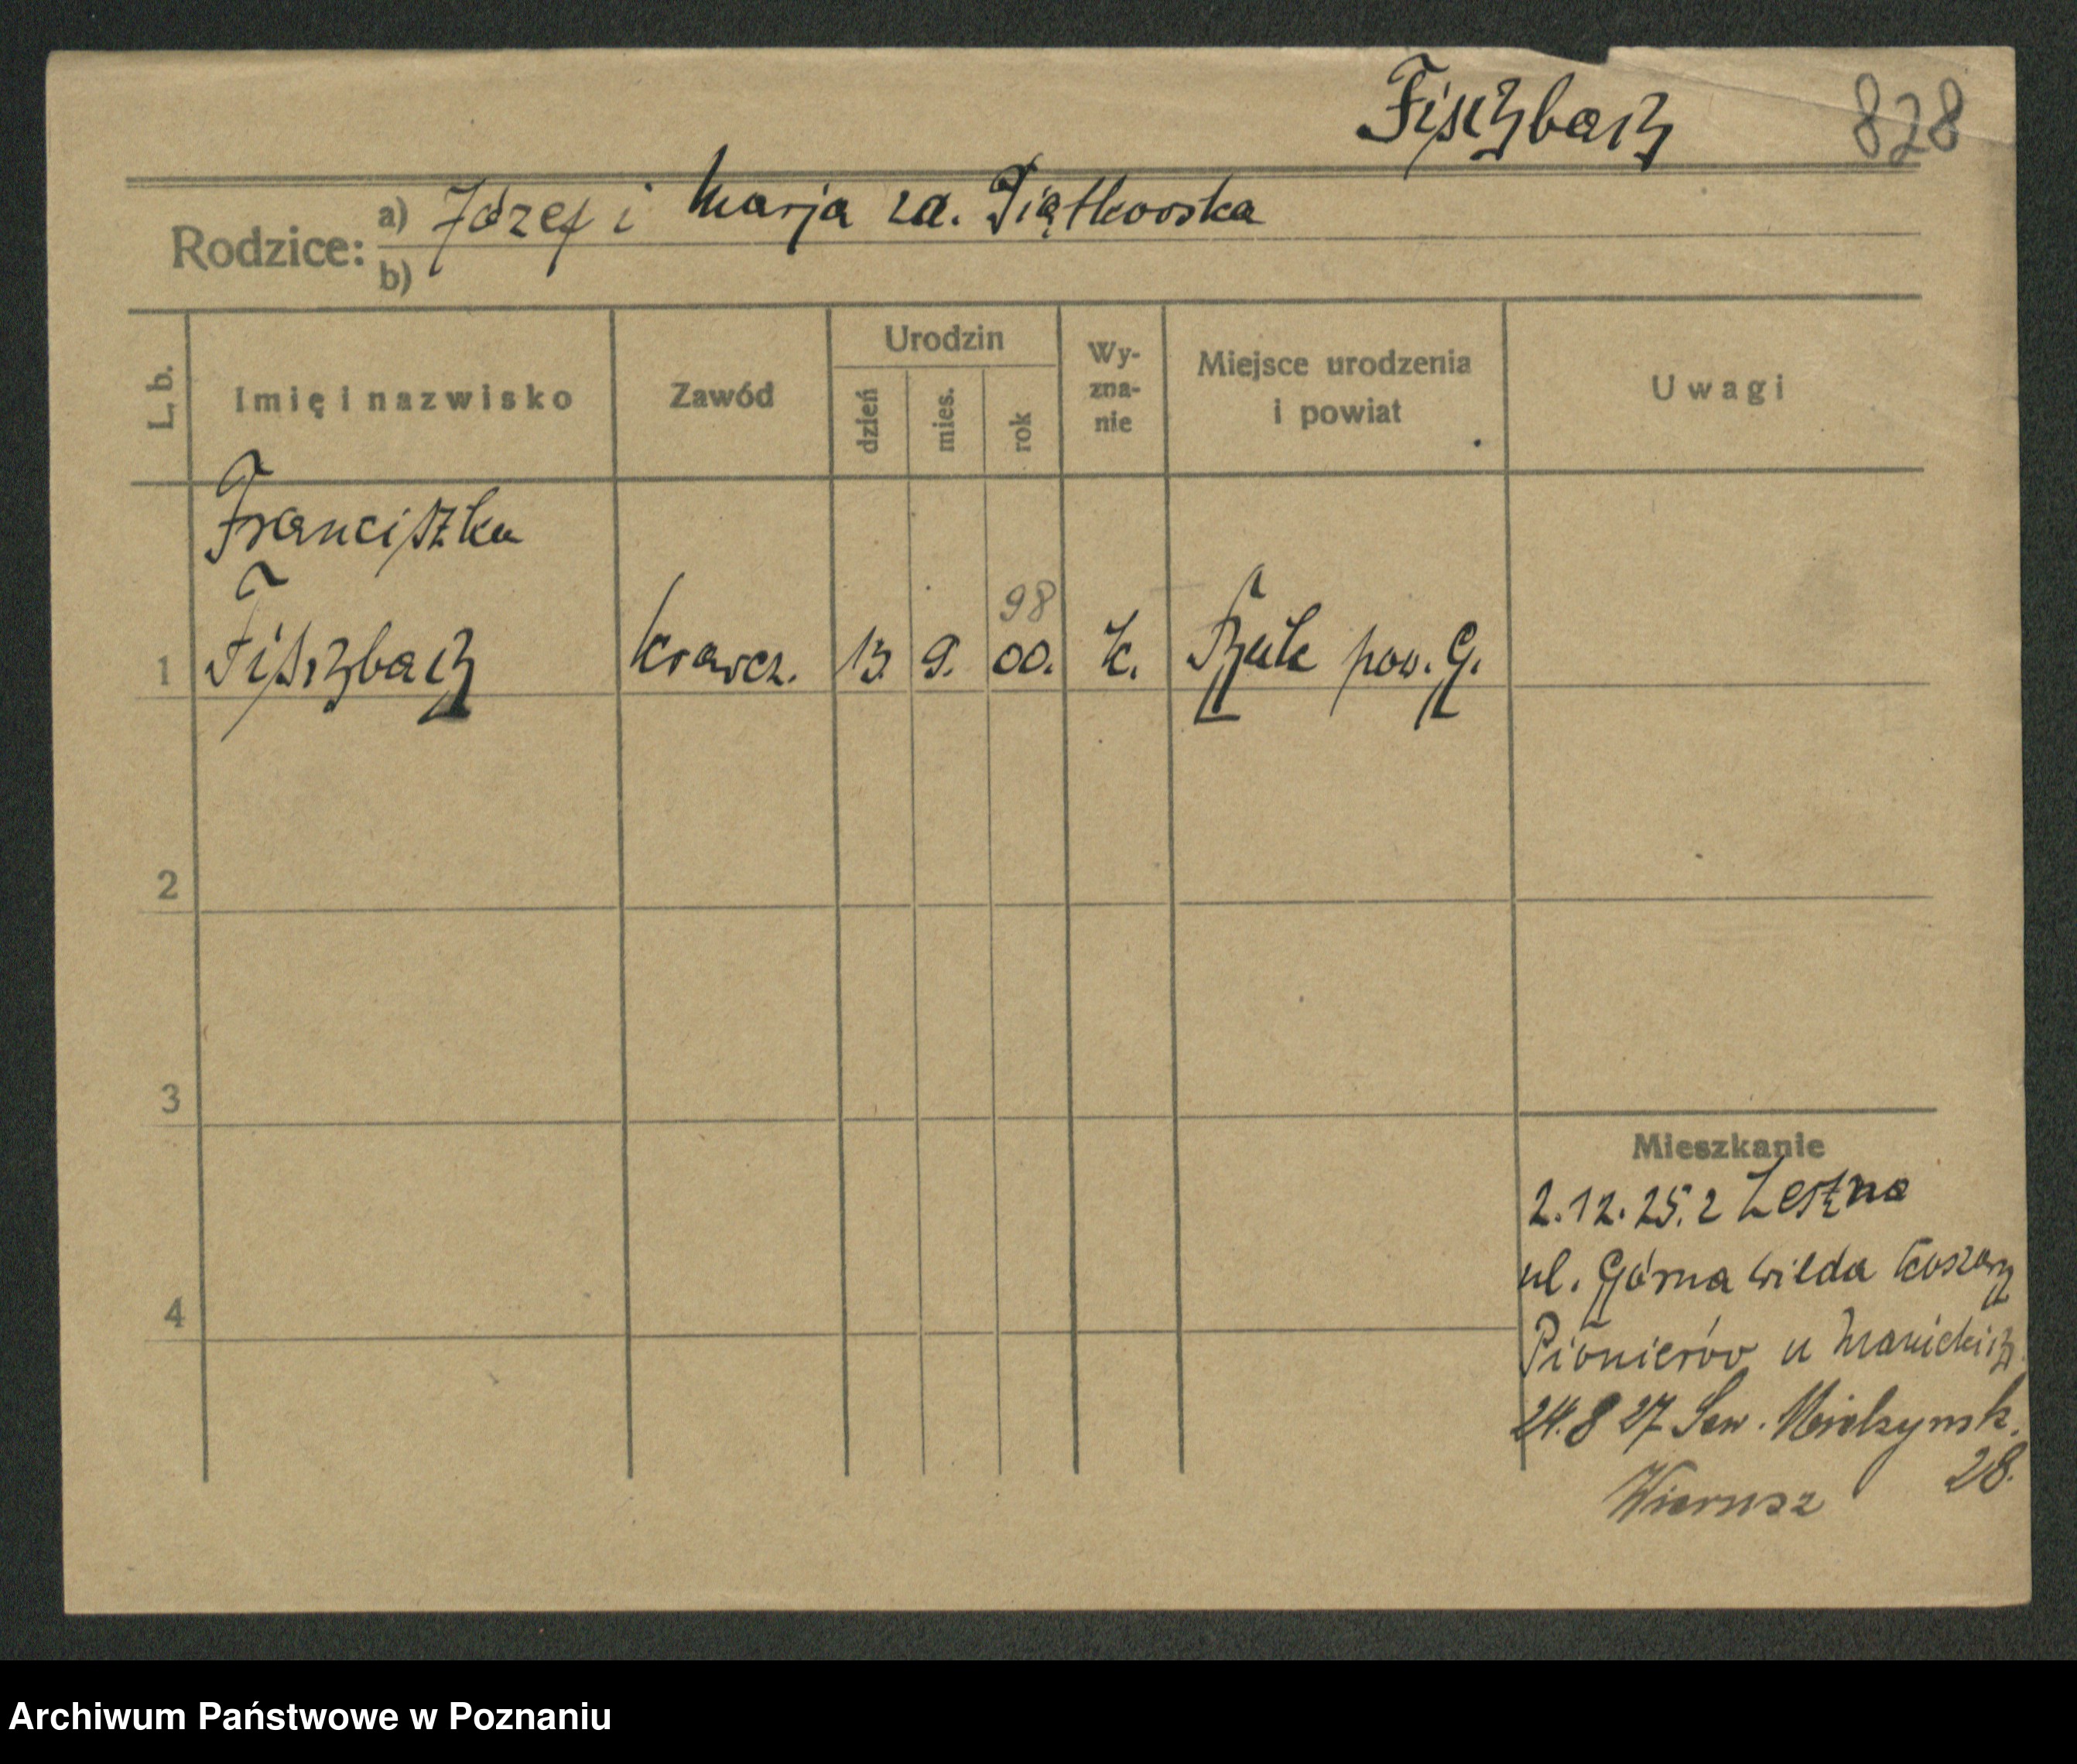 Fischbach 828
Rodzice: a) Józef i Marja za. Piątkowska
b)
L. b. Imię i nazwisko Zawód Urodzin dzień mies. rok Wy-zna-nie Miejsce urodzenia i powiat Uwagi
Franciszka
98
1 Fischbach krawcz. 13. 9. 00. k. pow. G.
2
3
Mieszkanie
2.12.25. z Leszna
ul. Górna Wilda koszary
4
Pionierów u
24.8 27 Sew. Mielżyńsk.
28.
Wierusz
Archiwum Państwowe w Poznaniu